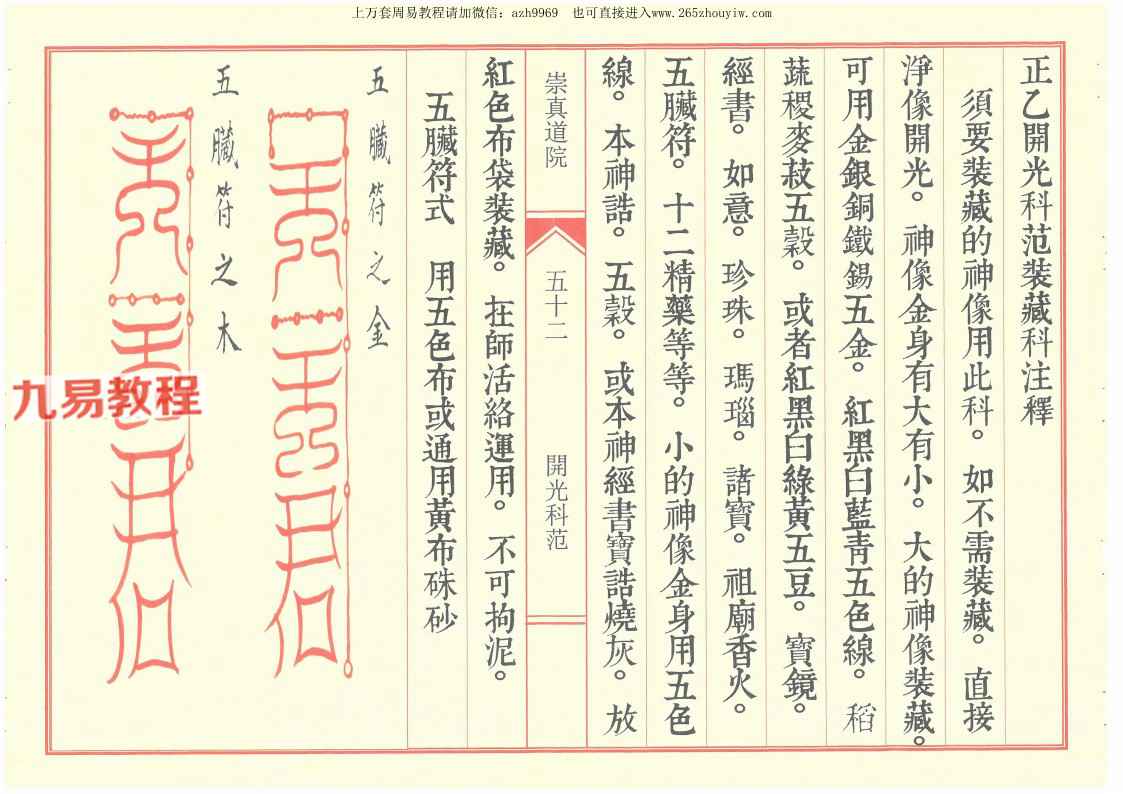 上万套周易教程请加微信：azh9969　也可直接进入www.265zhouyiw.com
正乙開光科范装藏科注釋
須要装藏的神像用此科。如不需装藏。直接
淨像開光。神像金身有大有小。大的神像装藏。
可用金銀銅鐵錫五金。紅黑白藍青五色線。稻
蔬稷麥菽五穀。或者紅黑白綠黃五豆。寶鏡。
經書。如意。珍珠。瑪瑙。諸寶。祖廟香火。
五臟符。十二精藥等等。小的神像金身用五色
線。本神誥。五穀。或本神經書寶誥燒灰。放
崇真道院
五十二
開光科范
紅色布袋装藏。在師活絡運用。不可拘泥。
五臟符式　用五色布或通用黃布硃砂
五臟符之金
五臟符之木
九易教程